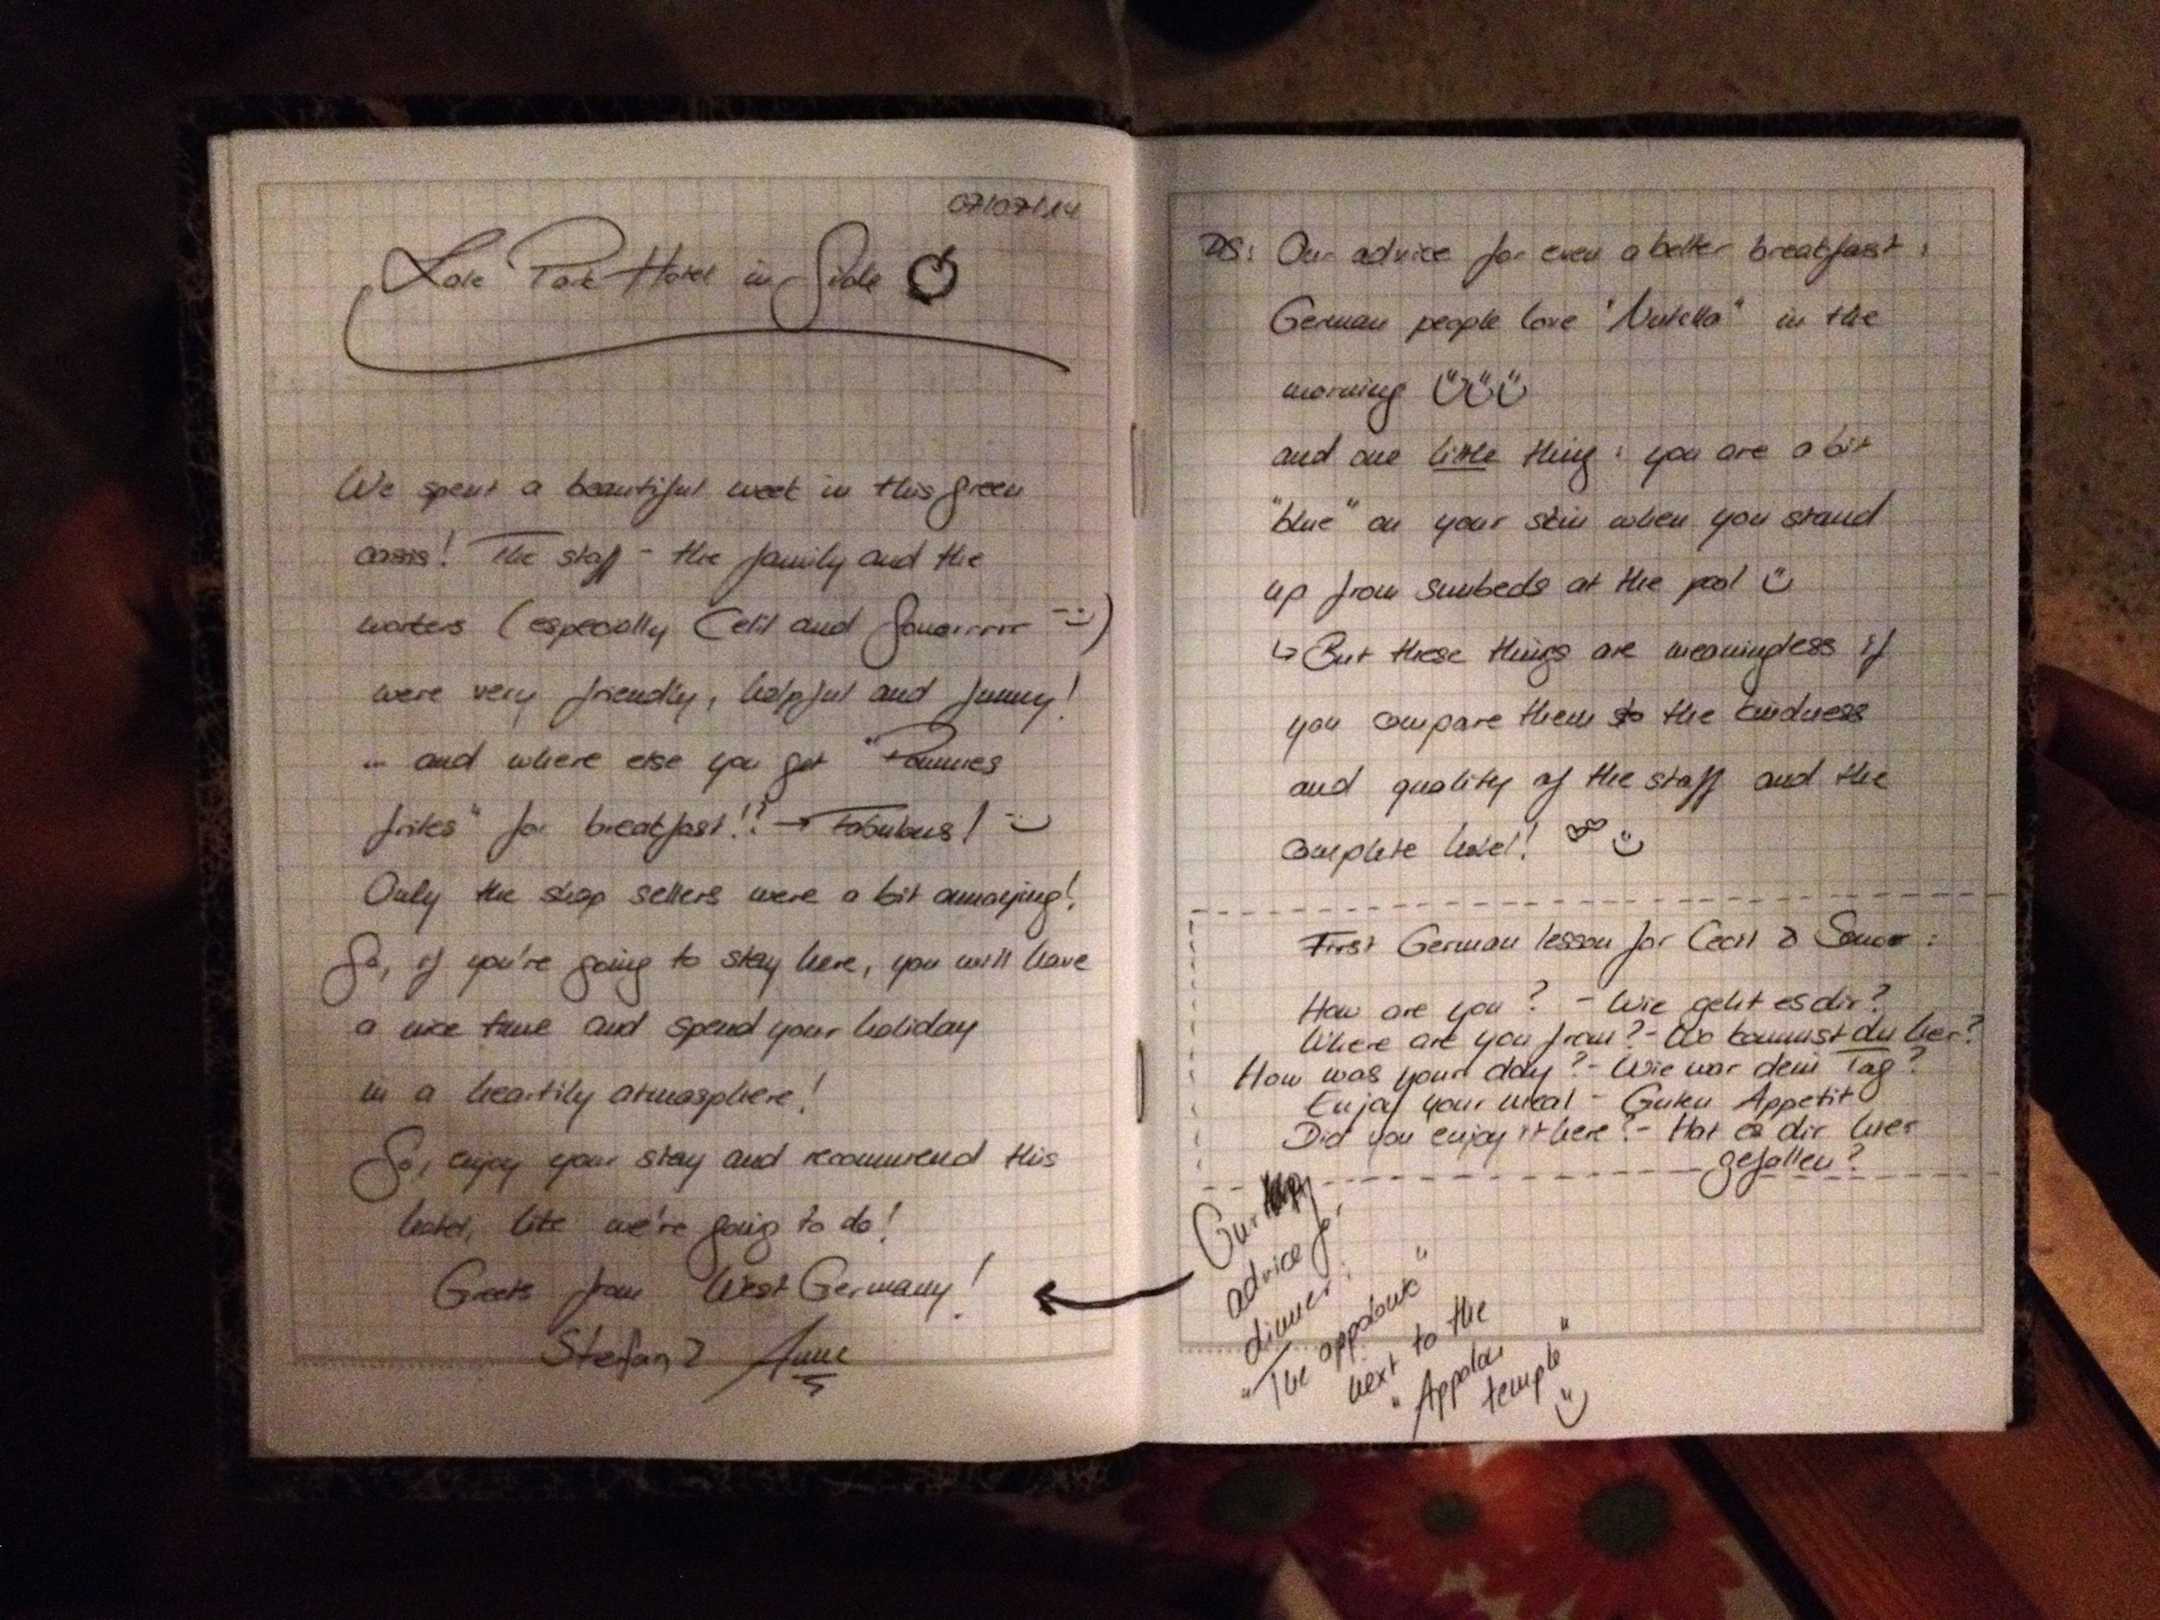 07/07/14
Lale Park Hotel in Side
We spent a beautiful week in this green
oasis! The staff - the family and the
workers (especially Celil and
were very friendly, helpful and funny!
... and where else you get "Pommes
frites" for breakfast!? → Fabulous!
Only the shop sellers were a bit annoying!
So, if you're going to stay here, you will have
a nice time and spend your holiday
in a heartily atmosphere!
So, enjoy your stay and recommend this
hotel, like we're going to do!
Greets from West Germany!
Stefan & Anne
PS: Our advice for even a better breakfast:
German people love "Nutella" in the
morning
and one little thing: you are a bit
"blue" on your skin when you stand
up from sunbeds at the pool
↳ But these things are meaningless if
you compare them to the kindness
and quality of the staff and the
complete hotel!
First German lesson for Cecil &
How are you? - Wie geht es dir?
Where are you from? - Wo kommst du her?
How was your day? - Wie war dein Tag?
Enjoy your meal - Guten Appetit
Did you enjoy it here? - Hat es dir hier
gefallen?
Our
advice for
dinner:
"The appolonic"
next to the
"Appolon
temple"